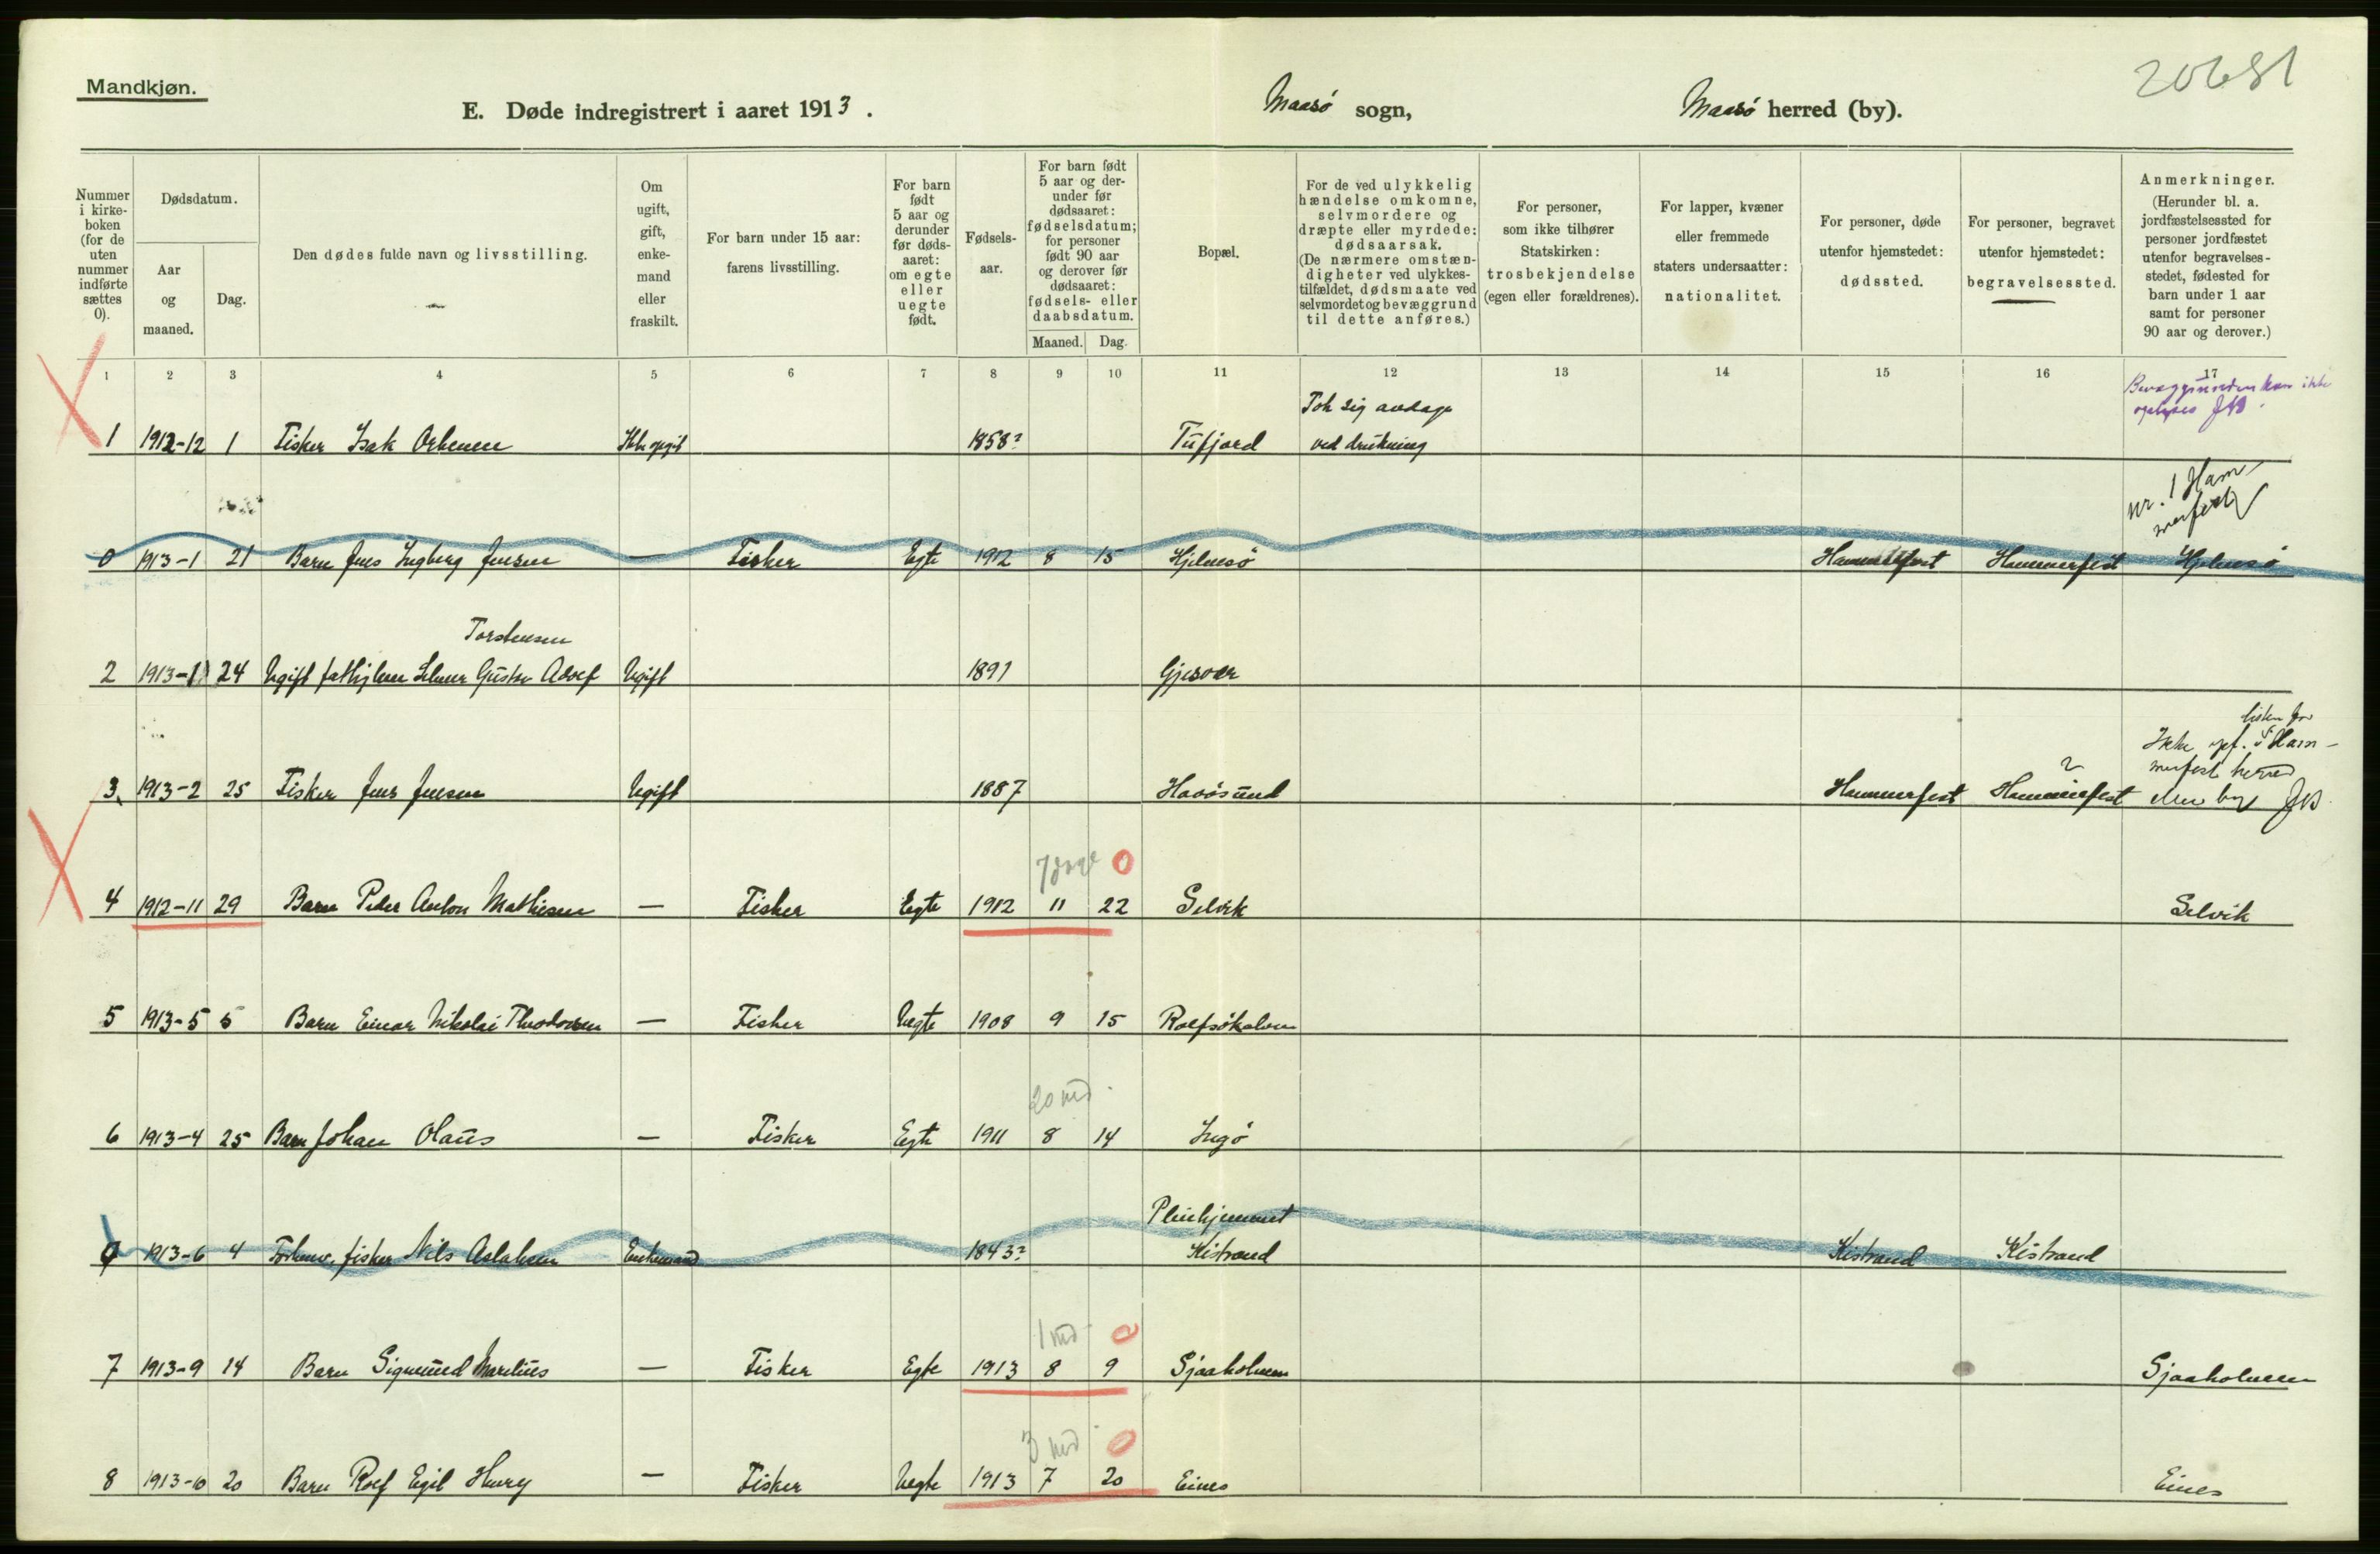 Mandkjøn.
20681
E. Døde indregistrert i aaret 1913.
Maasö sogn,
Maasö herred (by).
Nummer i kirke-boken (for de uten nummer indførte sættes 0).
Dødsdatum.
Aar og maaned.
Dag.
Den dødes fulde navn og livsstilling.
Om ugift, gift, enke-mand eller fraskilt.
For barn under 15 aar: farens livsstilling.
For barn født 5 aar og derunder før døds-aaret: om egte eller uegte født.
Fødsels-aar.
For barn født 5 aar og der-under før dødsaaret: fødselsdatum; for personer født 90 aar og derover før dødsaaret: fødsels- eller daabsdatum.
Maaned.
Dag.
Bopæl.
For de ved ulykkelig hændelse omkomne, selvmordere og dræpte eller myrdede: dødsaarsak. (De nærmere omstæn-digheter ved ulykkes-tilfældet, dødsmaate ved selvmordet og bevæggrund til dette anføres.)
For personer, som ikke tilhører Statskirken: trosbekjendelse (egen eller forældrenes).
For lapper, kvæner eller fremmede staters undersaatter: nationalitet.
For personer, døde utenfor hjemstedet: dødssted.
For personer, begravet utenfor hjemstedet: begravelsessted.
Anmerkninger. (Herunder bl. a. jordfæstelsessted for personer jordfæstet utenfor begravelses-stedet, fødested for barn under 1 aar samt for personer 90 aar og derover.)
1 2 3 4 5 6 7 8 9 10 11 12 13 14 15 16 17
Bevæggrunden kan ikke
oplyses JKB.
Tok sig avdage
1 1912-12 1 Fisker Isak Ørkenen Ikke gift 1858? Tufjord ved drukning
nr. 1 Ham-
merfest
0 1913-1 21 Barn Jens Ingberg Jensen — Fisker Egte 1912 8 15 Hjelmsö Hammerfest Hammerfest Hjelmsö
Torstensen
2 1913-1 24 Ugift fattiglem Selmer Gustav Adolf Ugift 1891 Gjesvær
Ikke opf. i listen for Ham-
merfest herred
3. 1913-2 25 Fisker Jens Jensen Ugift 1887 Havösund Hammerfest Hammerfest ? eller by JKB.
7 dage 0
4 1912-11 29 Barn Peder Anton Mathisen — Fisker Egte 1912 11 22 Selvik Selvik
5 1913-5 5 Barn Einar Nikolai Theodorsen — Fisker Uegte 1908 9 15 Rolfsöhalvøen
20 md
6 1913-4 25 Barn Johan Olaus — Fisker Egte 1911 8 14 Ingö
Pleiehjemmet
0 1913-6 4 Forhenv. fisker Nils Aslaksen Enkemand 1843? Kistrand Kistrand Kistrand
1 md 0
7 1913-9 14 Barn Sigmund Marelius — Fisker Egte 1913 8 9 Sjaaholmen Sjaaholmen
3 md 0
8 1913-10 20 Barn Rolf Egil Henry — Fisker Uegte 1913 7 20 Eines Eines